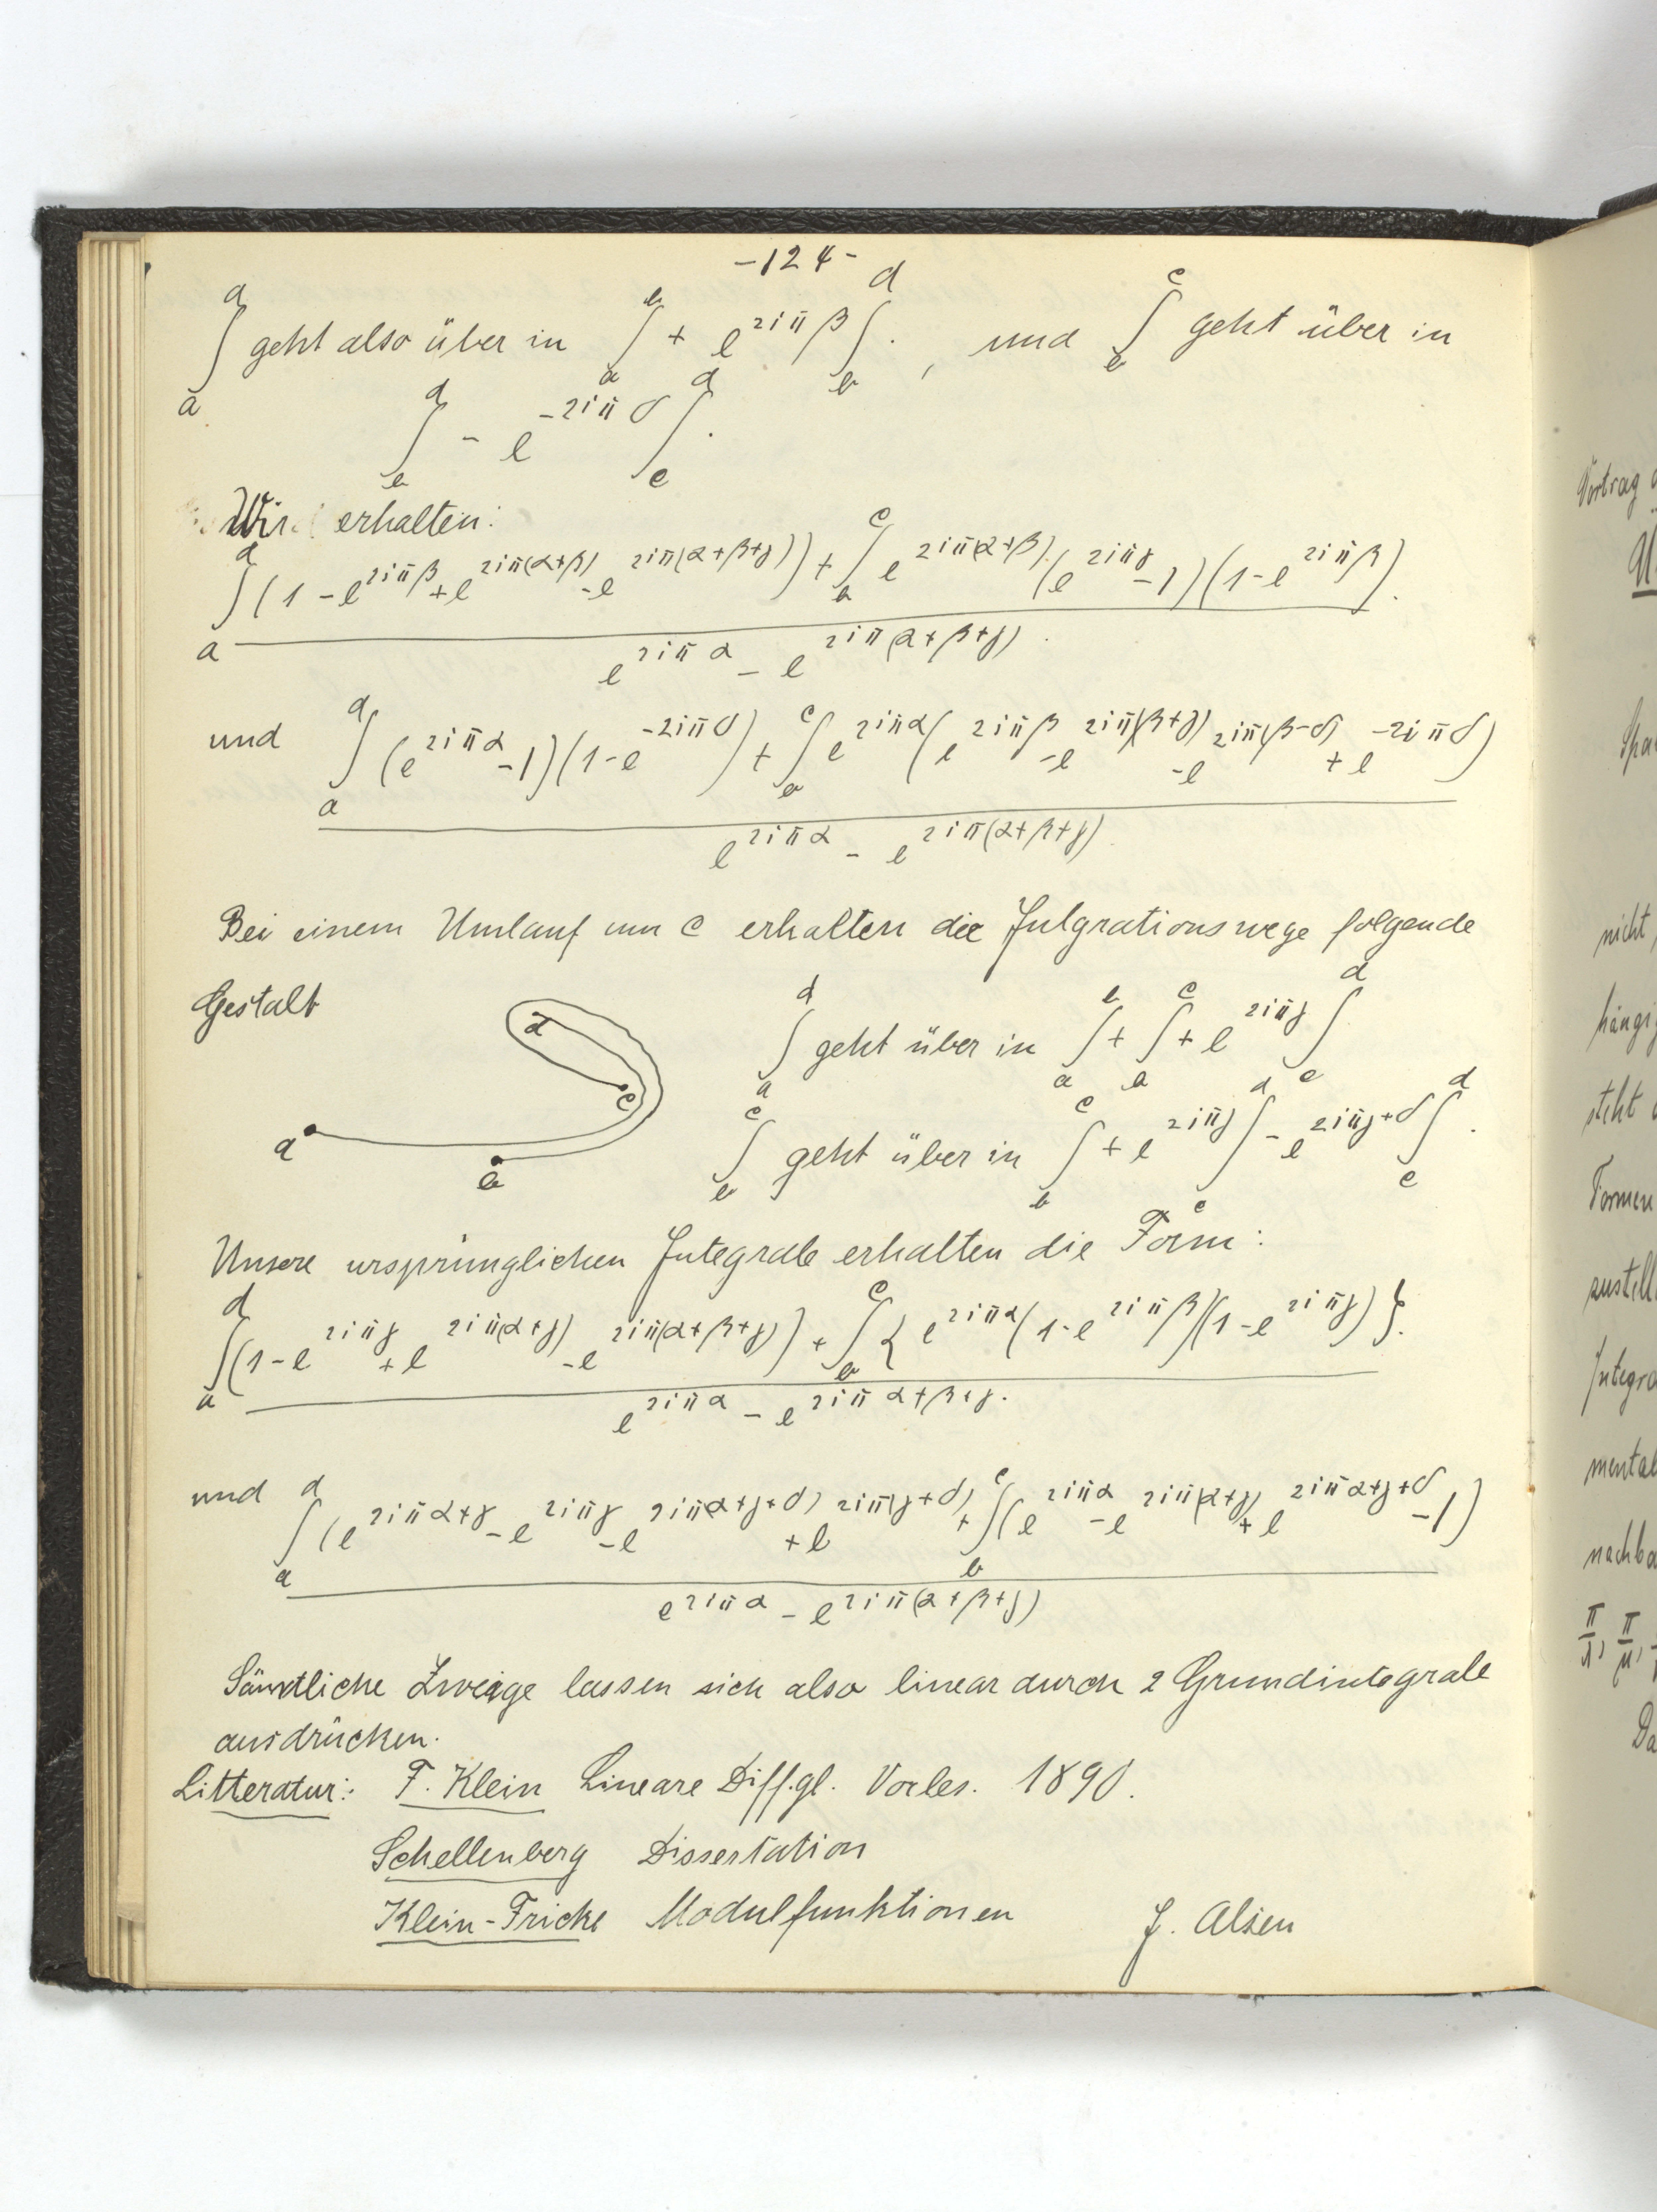 -124-
∫_a^d geht also über in ∫_a^b + e^{2iπβ} ∫_b^d . , und ∫_b^c geht über in
∫_b^d - e^{-2iπδ} ∫_c^d .
Wir erhalten:
∫_a^d (1 - e^{2iπβ} + e^{2iπ(α+β)} - e^{2iπ(α+β+γ)}) + ∫_b^c e^{2iπ(α+β)} (e^{2iπγ} - 1)(1 - e^{2iπβ}).
e^{2iπα} - e^{2iπ(α+β+γ)}.
und ∫_a^d (e^{2iπα} - 1)(1 - e^{-2iπδ}) + ∫_b^c e^{2iπα} (e^{2iπβ} - e^{2iπ(β+γ)} - e^{2iπ(β-δ)} + e^{-2iπδ})
e^{2iπα} - e^{2iπ(α+β+γ)}
Bei einem Umlauf um c erhalten die Integrationswege folgende
Gestalt
d
c
a
b
∫_a^d geht über in ∫_a^b + ∫_b^c + e^{2iπγ} ∫_c^d
∫_b^c geht über in ∫_b^c + e^{2iπγ} ∫_c^d - e^{2iπγ+δ} ∫_c^d .
Unsere ursprünglichen Integrale erhalten die Form:
∫_a^d (1 - e^{2iπγ} + e^{2iπ(α+γ)} - e^{2iπ(α+β+γ)}) + ∫_b^c { e^{2iπα} (1 - e^{2iπβ})(1 - e^{2iπγ}) }.
e^{2iπα} - e^{2iπα+β+γ}.
und ∫_a^d (e^{2iπα+γ} - e^{2iπγ} - e^{2iπ(α+γ+δ)} + e^{2iπ(γ+δ)} + ∫_b^c (e^{2iπα} - e^{2iπ(α+γ)} + e^{2iπα+γ+δ} - 1)
e^{2iπα} - e^{2iπ(α+β+γ)}
Sämtliche Zweige lassen sich also linear durch 2 Grundintegrale
ausdrücken.
Litteratur: F. Klein Lineare Diffgl. Vorles. 1890.
Schellenberg Dissertation
Klein-Fricke Modulfunktionen J. Alsen
Vortrag
nicht,
steht
Formen